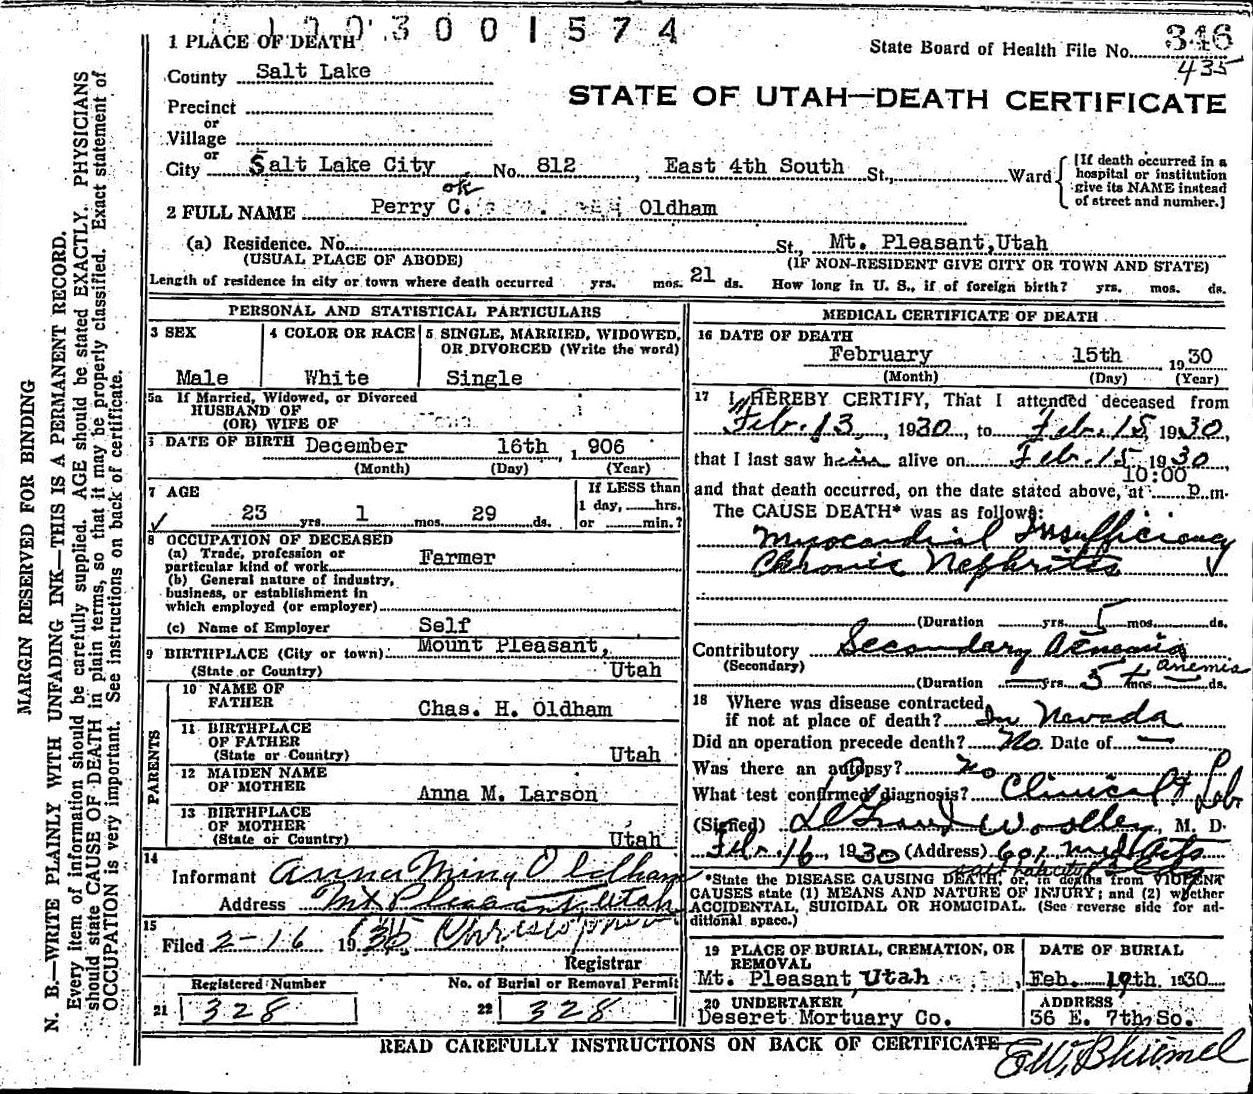 1003001574
1 PLACE OF DEATH
State Board of Health File No. 346
435
County Salt Lake
STATE OF UTAH—DEATH CERTIFICATE
Precinct
or
Village
or
City Salt Lake City No. 812, East 4th South St., Ward
[If death occurred in a
hospital or institution
give its NAME instead
of street and number.]
ok
2 FULL NAME Perry C. Oldham
(a) Residence. No. St., Mt. Pleasant, Utah
(USUAL PLACE OF ABODE) (IF NON-RESIDENT GIVE CITY OR TOWN AND STATE)
Length of residence in city or town where death occurred yrs. mos. 21 ds. How long in U. S., if of foreign birth? yrs. mos. ds.
PERSONAL AND STATISTICAL PARTICULARS
3 SEX
Male
4 COLOR OR RACE
White
5 SINGLE, MARRIED, WIDOWED,
OR DIVORCED (Write the word)
Single
5a If Married, Widowed, or Divorced
HUSBAND OF
(OR) WIFE OF
DATE OF BIRTH December 16th, 1906
(Month) (Day) (Year)
7 AGE
23 yrs. 1 mos. 29 ds.
If LESS than
1 day, hrs.
or min.?
8 OCCUPATION OF DECEASED
(a) Trade, profession or
particular kind of work Farmer
(b) General nature of industry,
business, or establishment in
which employed (or employer)
(c) Name of Employer Self
9 BIRTHPLACE (City or town) Mount Pleasant,
(State or Country) Utah
PARENTS
10 NAME OF
FATHER Chas. H. Oldham
11 BIRTHPLACE
OF FATHER
(State or Country) Utah
12 MAIDEN NAME
OF MOTHER Anna M. Larson
13 BIRTHPLACE
OF MOTHER
(State or Country) Utah
14
Informant Anna Miny Oldham
Address Mt Pleasant, Utah
15
Filed 2-16 1930
Registrar
Registered Number No. of Burial or Removal Permit
21 328 22 328
MEDICAL CERTIFICATE OF DEATH
16 DATE OF DEATH
February 15th 1930
(Month) (Day) (Year)
17 I HEREBY CERTIFY, That I attended deceased from
Feb. 13, 1930, to Feb. 15, 1930,
that I last saw him alive on Feb. 15 1930,
10:00
and that death occurred, on the date stated above, at P.m.
The CAUSE DEATH* was as follows:
Myocardial Insufficiency
Chronic Nephritis
(Duration yrs. 5 mos. ds.
Contributory Secondary Anemia
(Secondary) anemia
(Duration — yrs. 5+ mos. — ds.
18 Where was disease contracted
if not at place of death? In Nevada
Did an operation precede death? No. Date of —
Was there an autopsy? No
What test confirmed diagnosis? Clinical & Lab
(Signed) LeGrand Woolley, M. D.
Feb. 16, 1930 (Address) 601 Med Arts
*State the DISEASE CAUSING DEATH, or, in deaths from VIOLENT
CAUSES state (1) MEANS AND NATURE OF INJURY; and (2) whether
ACCIDENTAL, SUICIDAL OR HOMICIDAL. (See reverse side for ad-
ditional space.)
19 PLACE OF BURIAL, CREMATION, OR
REMOVAL
Mt. Pleasant Utah
DATE OF BURIAL
Feb. 19th 1930
20 UNDERTAKER
Deseret Mortuary Co.
ADDRESS
36 E. 7th So.
READ CAREFULLY INSTRUCTIONS ON BACK OF CERTIFICATE
E W. Bhumel
MARGIN RESERVED FOR BINDING
N. B.—WRITE PLAINLY WITH UNFADING INK—THIS IS A PERMANENT RECORD.
Every item of information should be carefully supplied. AGE should be stated EXACTLY. PHYSICIANS
should state CAUSE OF DEATH in plain terms, so that it may be properly classified. Exact statement of
OCCUPATION is very important. See instructions on back of certificate.